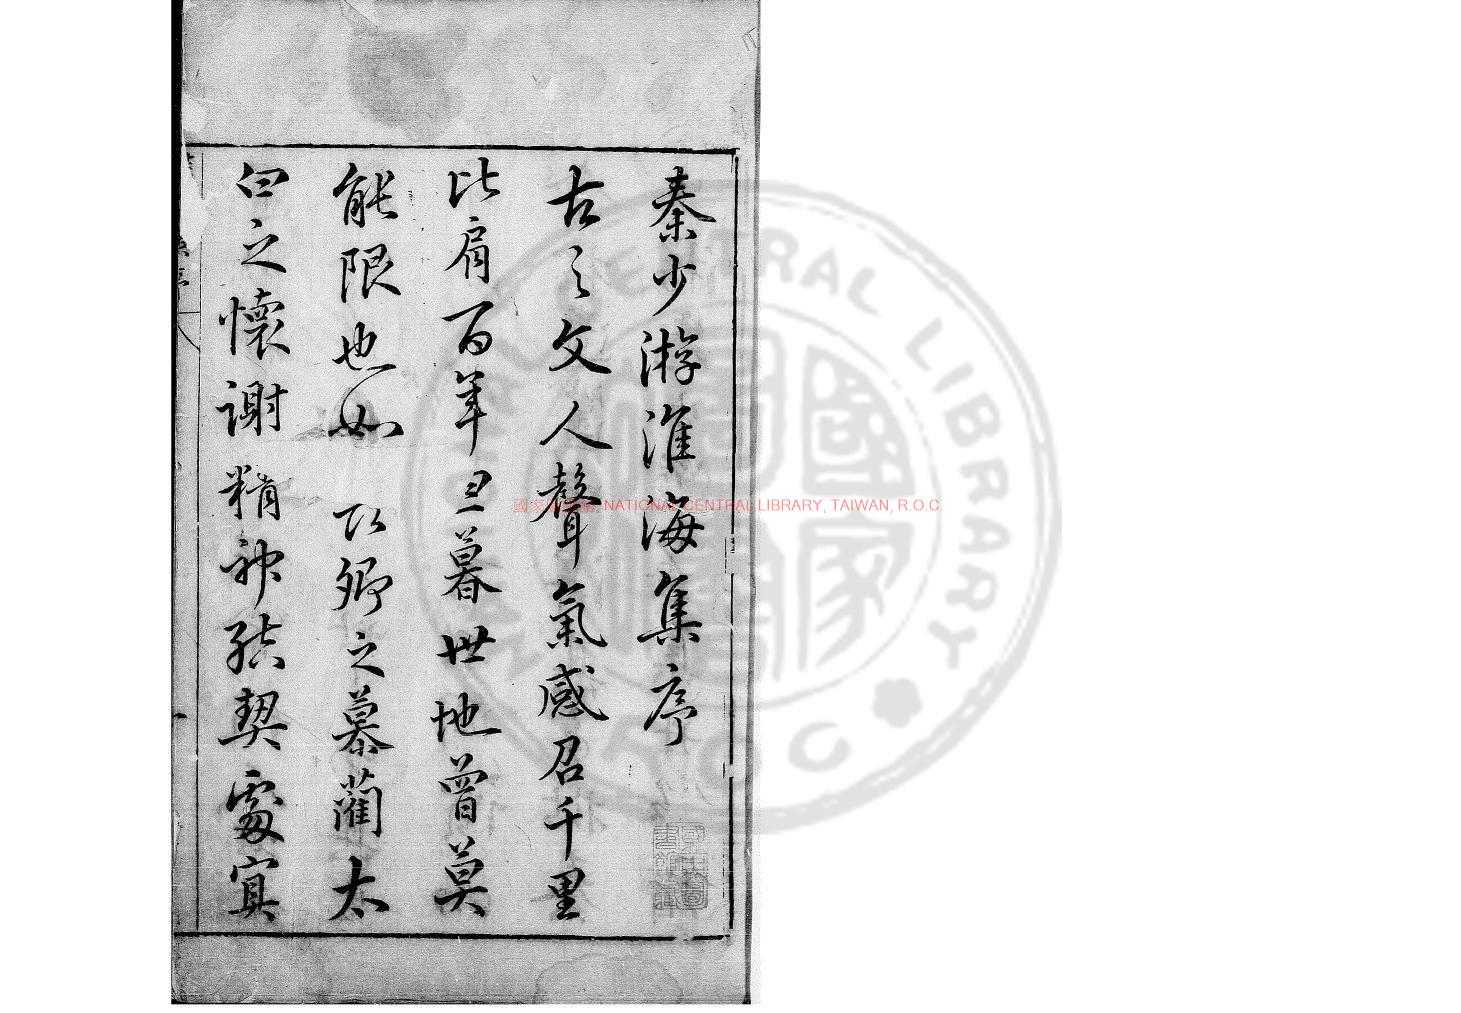 秦少游淮海集序
古之文人聲氣感召千里
比肩百年旦暮世地曾莫
能限也如長卿之慕藺太
白之懷謝精神結契處寘
國家圖書館, NATIONAL CENTRAL LIBRARY, TAIWAN, R.O.C.
NATIONAL CENTRAL LIBRARY
R.O.C
國家圖書